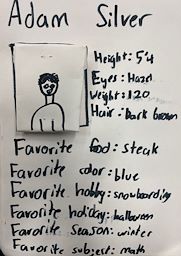 Adam Silver
Height: 5'4
Eyes: Hazel
Weight: 120
Hair: Dark brown
Favorite food: steak
Favorite color: blue
Favorite hobby: snowboarding
Favorite holiday: halloween
Favorite season: winter
Favorite subject: math